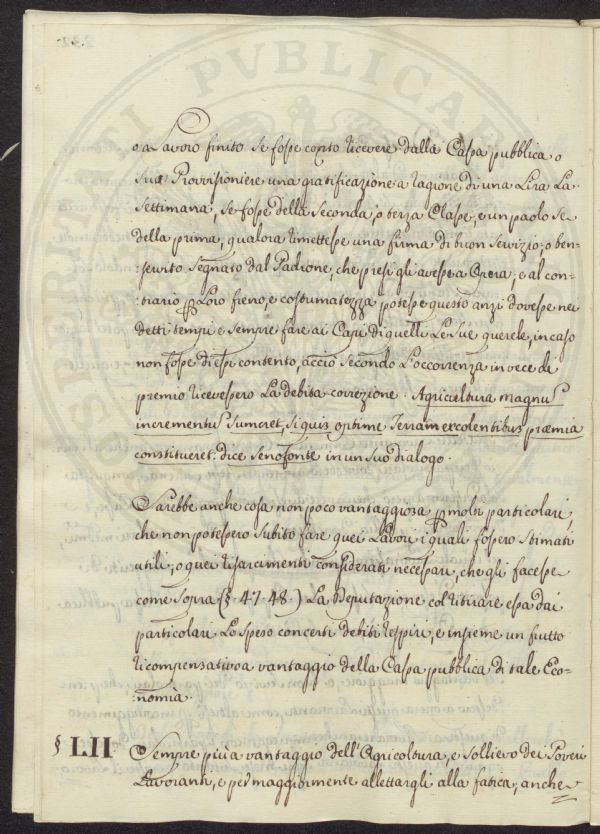 o a Lavoro finito se fosse costo ricevere dalla Cassa pubblica o
sua Provvisioniere una gratificazione a ragione di una Lira La
Settimana, se fosse della Seconda, o terza Classe, e un paolo se
della prima, qualora rimettesse una firma di buon Servizio, o ben-
:servito segnato dal Padrone, che presi gli avesse a Opera, e al con-
:trario p Loro freno, e costumatezza potesse questo anzi dovesse nei
detti tempi e sempre fare ai Capi di quelli Le sue querele, in caso
non fosse di essi contento, acciò Secondo L'occorrenza in vece di
premio ricevessero La debita correzione. Agricultura magnu
incrementu sumeret, si quis optime Terram excolentibus præmia
constitueret: dice Senofonte in un suo dialogo.
Sarebbe anche cosa non poco vantaggiosa p molti particolari,
che non potessero subito fare quei Lavori i quali fossero stimati
utili, o quei risarcimenti considerati necessari, che gli facesse
come Sopra (§. 47. 48.) La Deputazione col ritirare essa dai
particolari Lo speso con certi debiti respiri, e insieme un frutto
ricompensativo a vantaggio della Cassa pubblica di tale Eco-
:nomia.
§ LII. Sempre più a vantaggio dell'Agricoltura, e Sollievo dei Poveri
Lavoranti, e per maggiormente allettargli alla fatica, anche
PUBLICAE